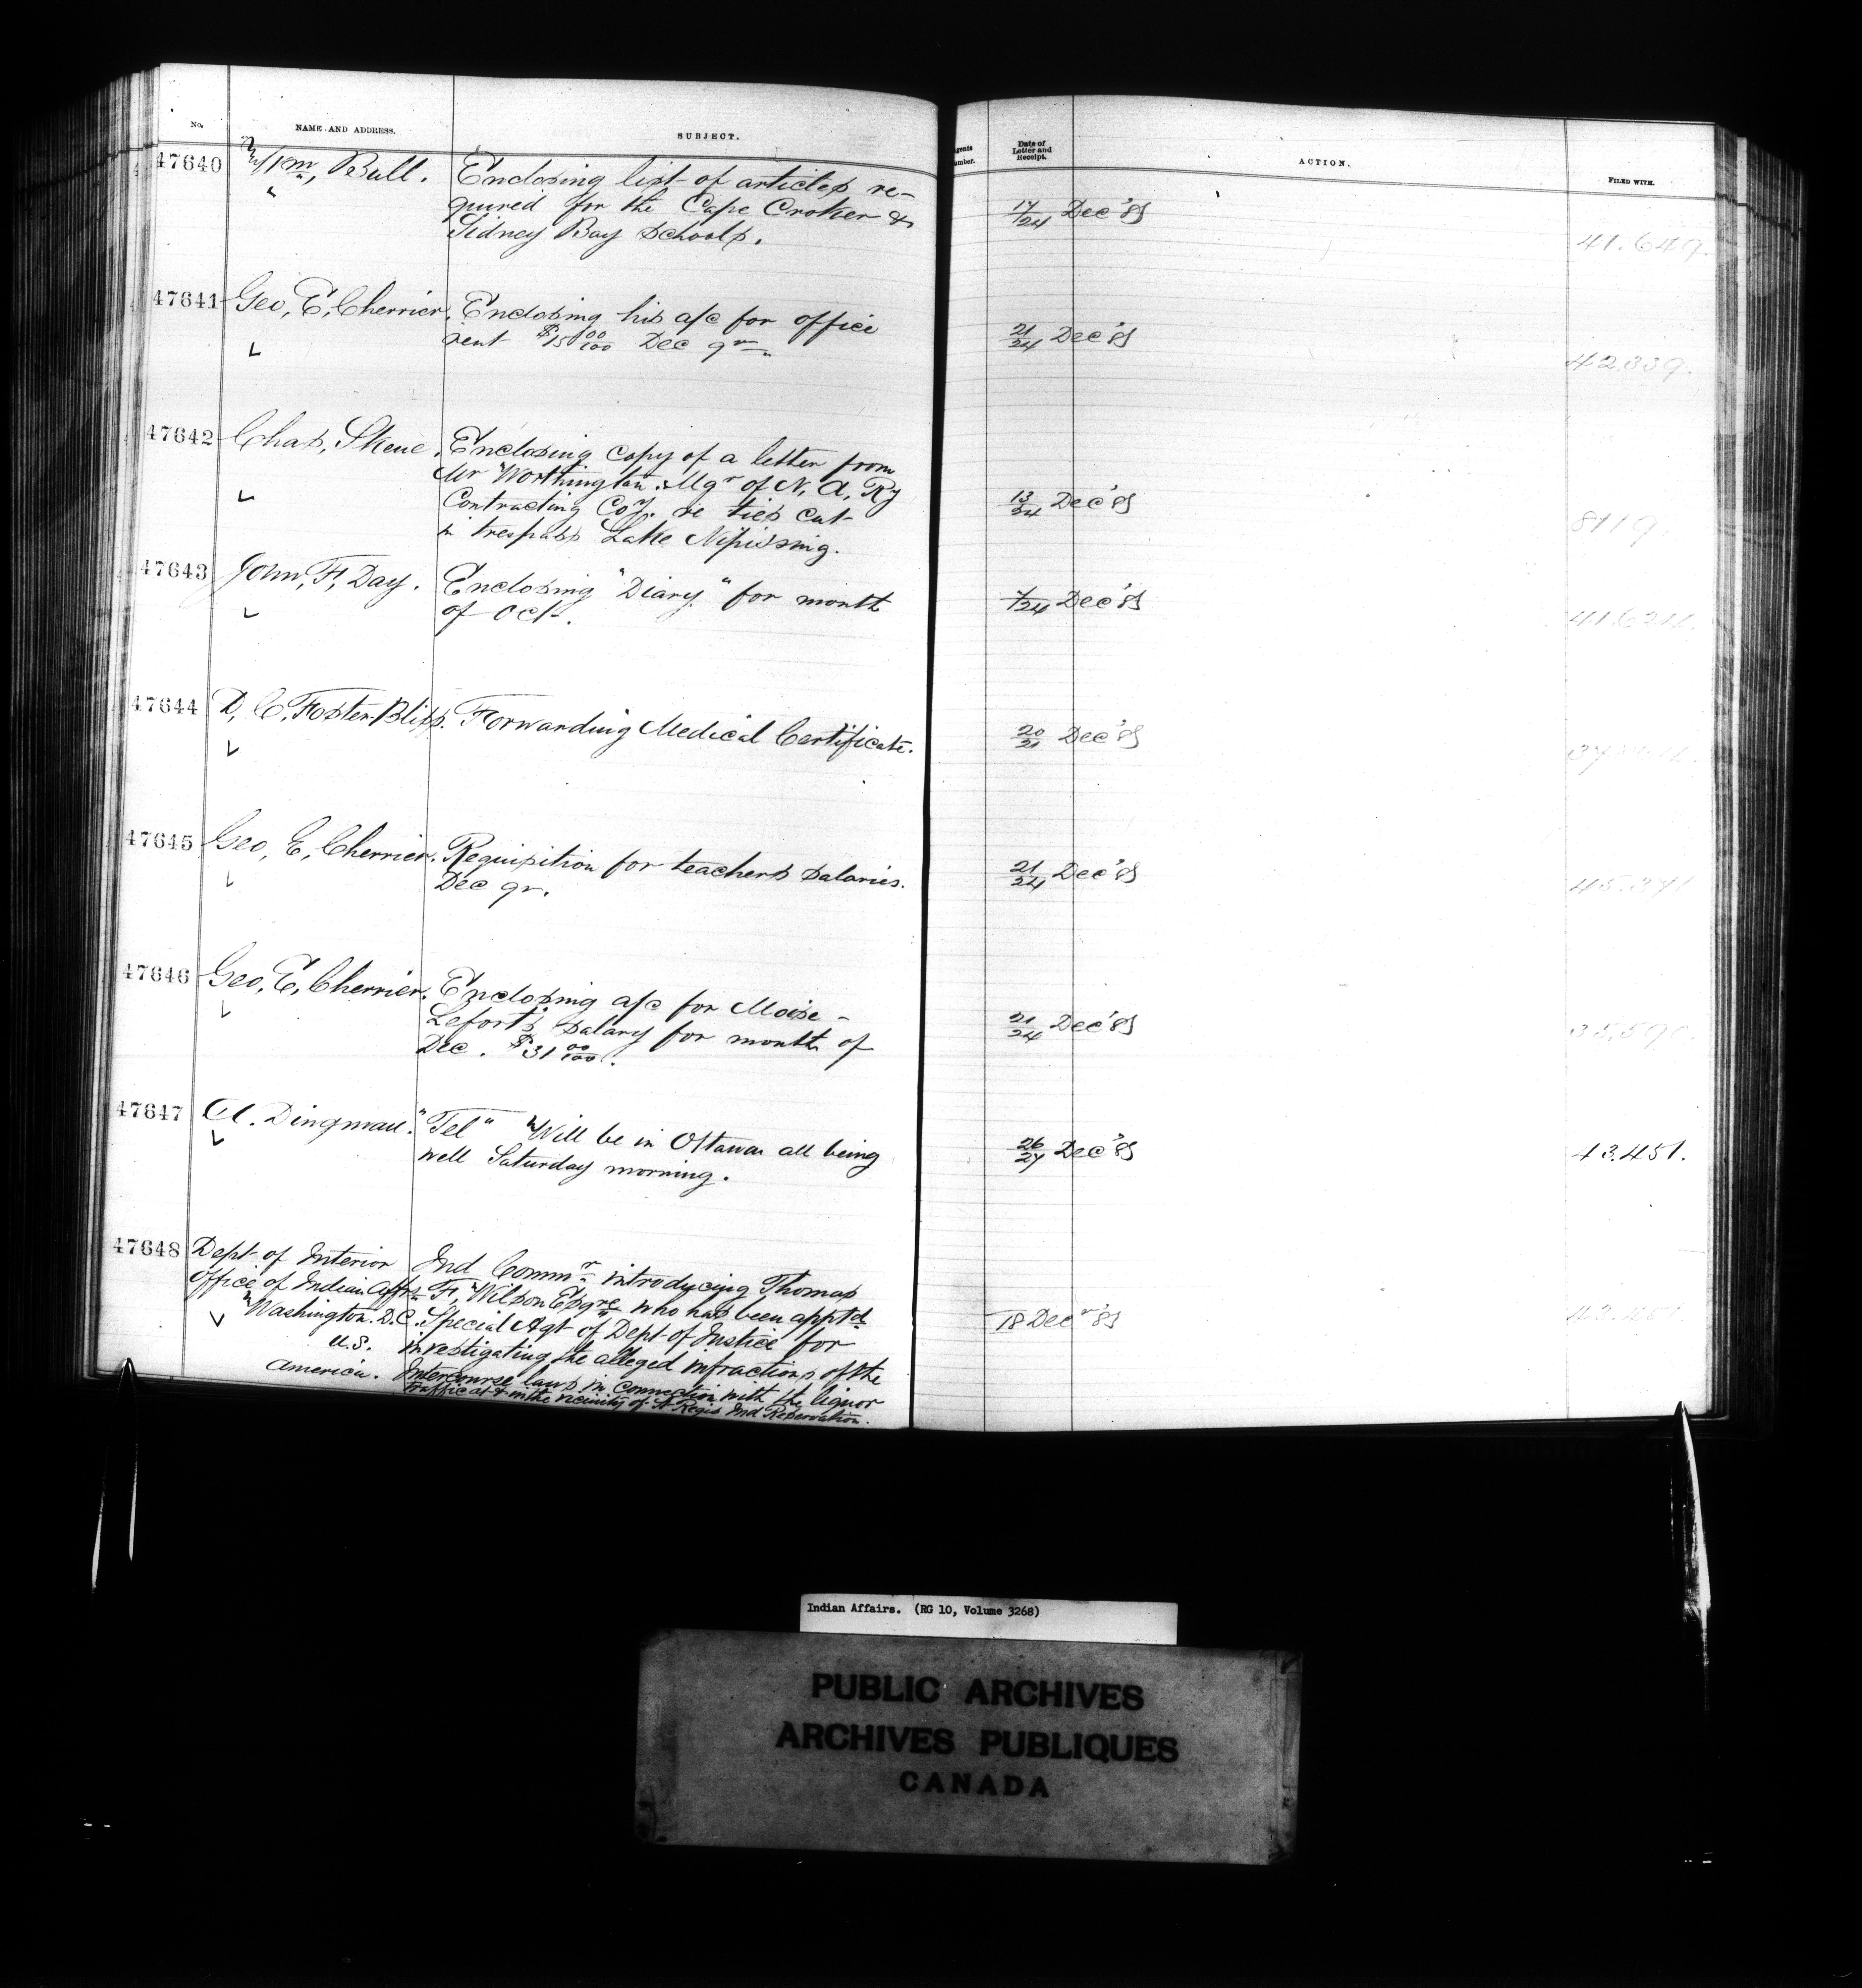 No. NAME AND ADDRESS. SUBJECT.
47640 Wm, Bull. Enclosing list of articles re-
quired for the Cape Croker &
Sidney Bay schools.
47641 Geo, E, Cherrier. Enclosing his a/c for office
rent $15 00/100 Dec qr.
47642 Chas, Skene. Enclosing copy of a letter from
Mr Worthington Mgr of N, A, Ry
Contracting Coy. re ties cut
in trespass Lake Nipissing.
47643 John, F, Day. Enclosing "Diary" for month
of Oct.
47644 D, C, Foster Bliss. Forwarding Medical Certificate.
47645 Geo, E, Cherrier. Requisition for teachers salaries.
Dec qr.
47646 Geo, E, Cherrier. Enclosing a/c for Moise
Lefort's salary for month of
Dec. $31 00/100.
47647 A. Dingman. "Tel" Will be in Ottawa all being
well Saturday morning.
47648 Dept of Interior Ind Commr introducing Thomas
Office of Indian Affrs F, Wilson Esqre who has been apptd
Washington. D.C. Special Agt of Dept of Justice for
U.S. investigating the alleged infractions of the
America. Intercourse laws in connection with the liquor
traffic at & in the vicinity of St Regis Ind Reservation.
Date of
Letter and
Receipt. ACTION. FILED WITH.
17/24 Dec '85 41.649.
21/24 Dec '85 42339.
13/24 Dec '85 8119.
7/24 Dec '85
20/21 Dec '85
21/24 Dec '85
21/24 Dec '85
26/27 Dec '85 43.451.
18 Decr '85
Indian Affairs. (RG 10, Volume 3268)
PUBLIC ARCHIVES
ARCHIVES PUBLIQUES
CANADA